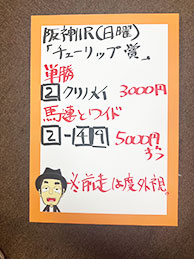 阪神11R(日曜)
「チューリップ賞」。
単勝
2 クリノメイ 3000円
馬連とワイド
2-4 9 5000円
ずつ
※前走は度外視。